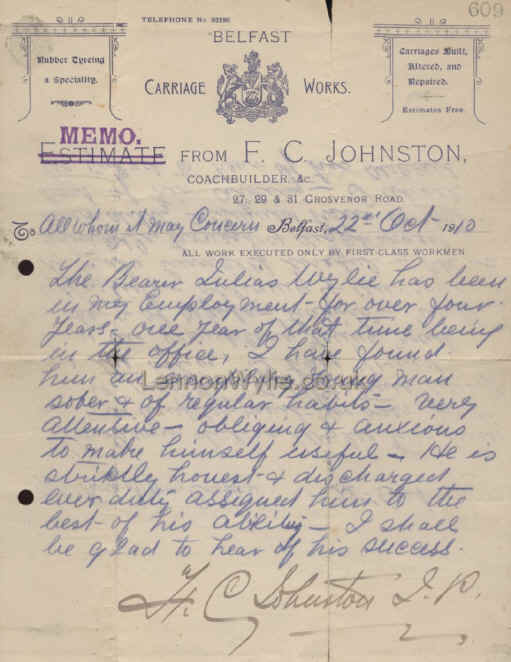 609
TELEPHONE No
BELFAST
CARRIAGE WORKS.
Rubber Tyreing
a Speciality.
Carriages Built,
Altered, and
Repaired.
Estimates Free.
MEMO.
ESTIMATE FROM F. C. JOHNSTON,
COACHBUILDER &c.
27, 29 & 31 GROSVENOR ROAD
To All whom it may Concern Belfast, 22nd Oct 1910
ALL WORK EXECUTED ONLY BY FIRST-CLASS WORKMEN
The Bearer Julius Wylie has been
in my Employment for over four
Years - one year of that time being
in the office, I have found
him an young man
LennonWylie.co.uk
sober & of regular habits - Very
attentive - obliging & anxious
to make himself useful - He is
strictly honest & discharged
ever duty assigned him to the
best of his ability - I shall
be glad to hear of his success.
F. C Johnston J.P.